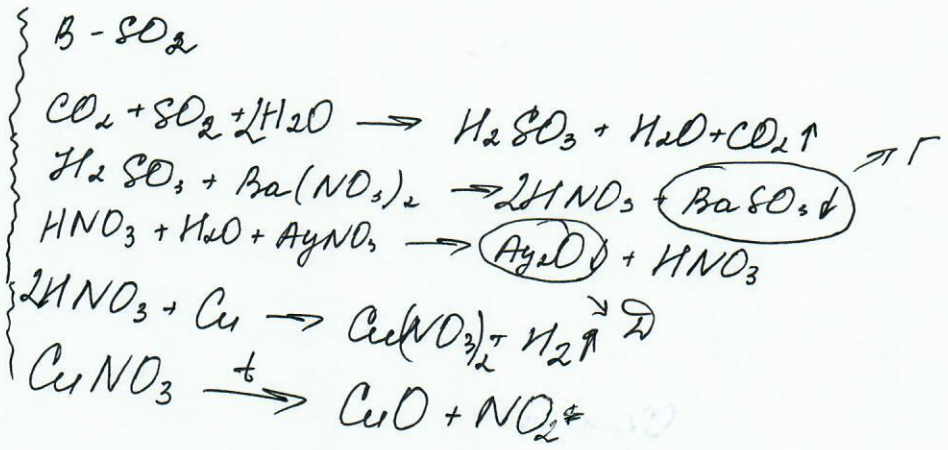 В - SO2
CO2 + SO2 + 2H2O → H2SO3 + H2O + CO2↑
H2SO3 + Ba(NO3)2 → 2HNO3 + BaSO3↓ → Г
HNO3 + H2O + AgNO3 → Ag2O↓ + HNO3
2HNO3 + Cu → Cu(NO3)2 + H2↑ Д
CuNO3 t→ CuO + NO2